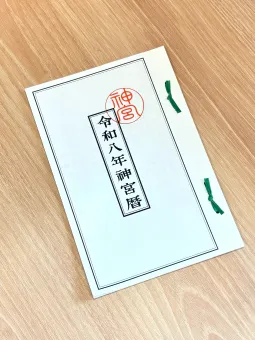 神宮
令和八年神宮暦